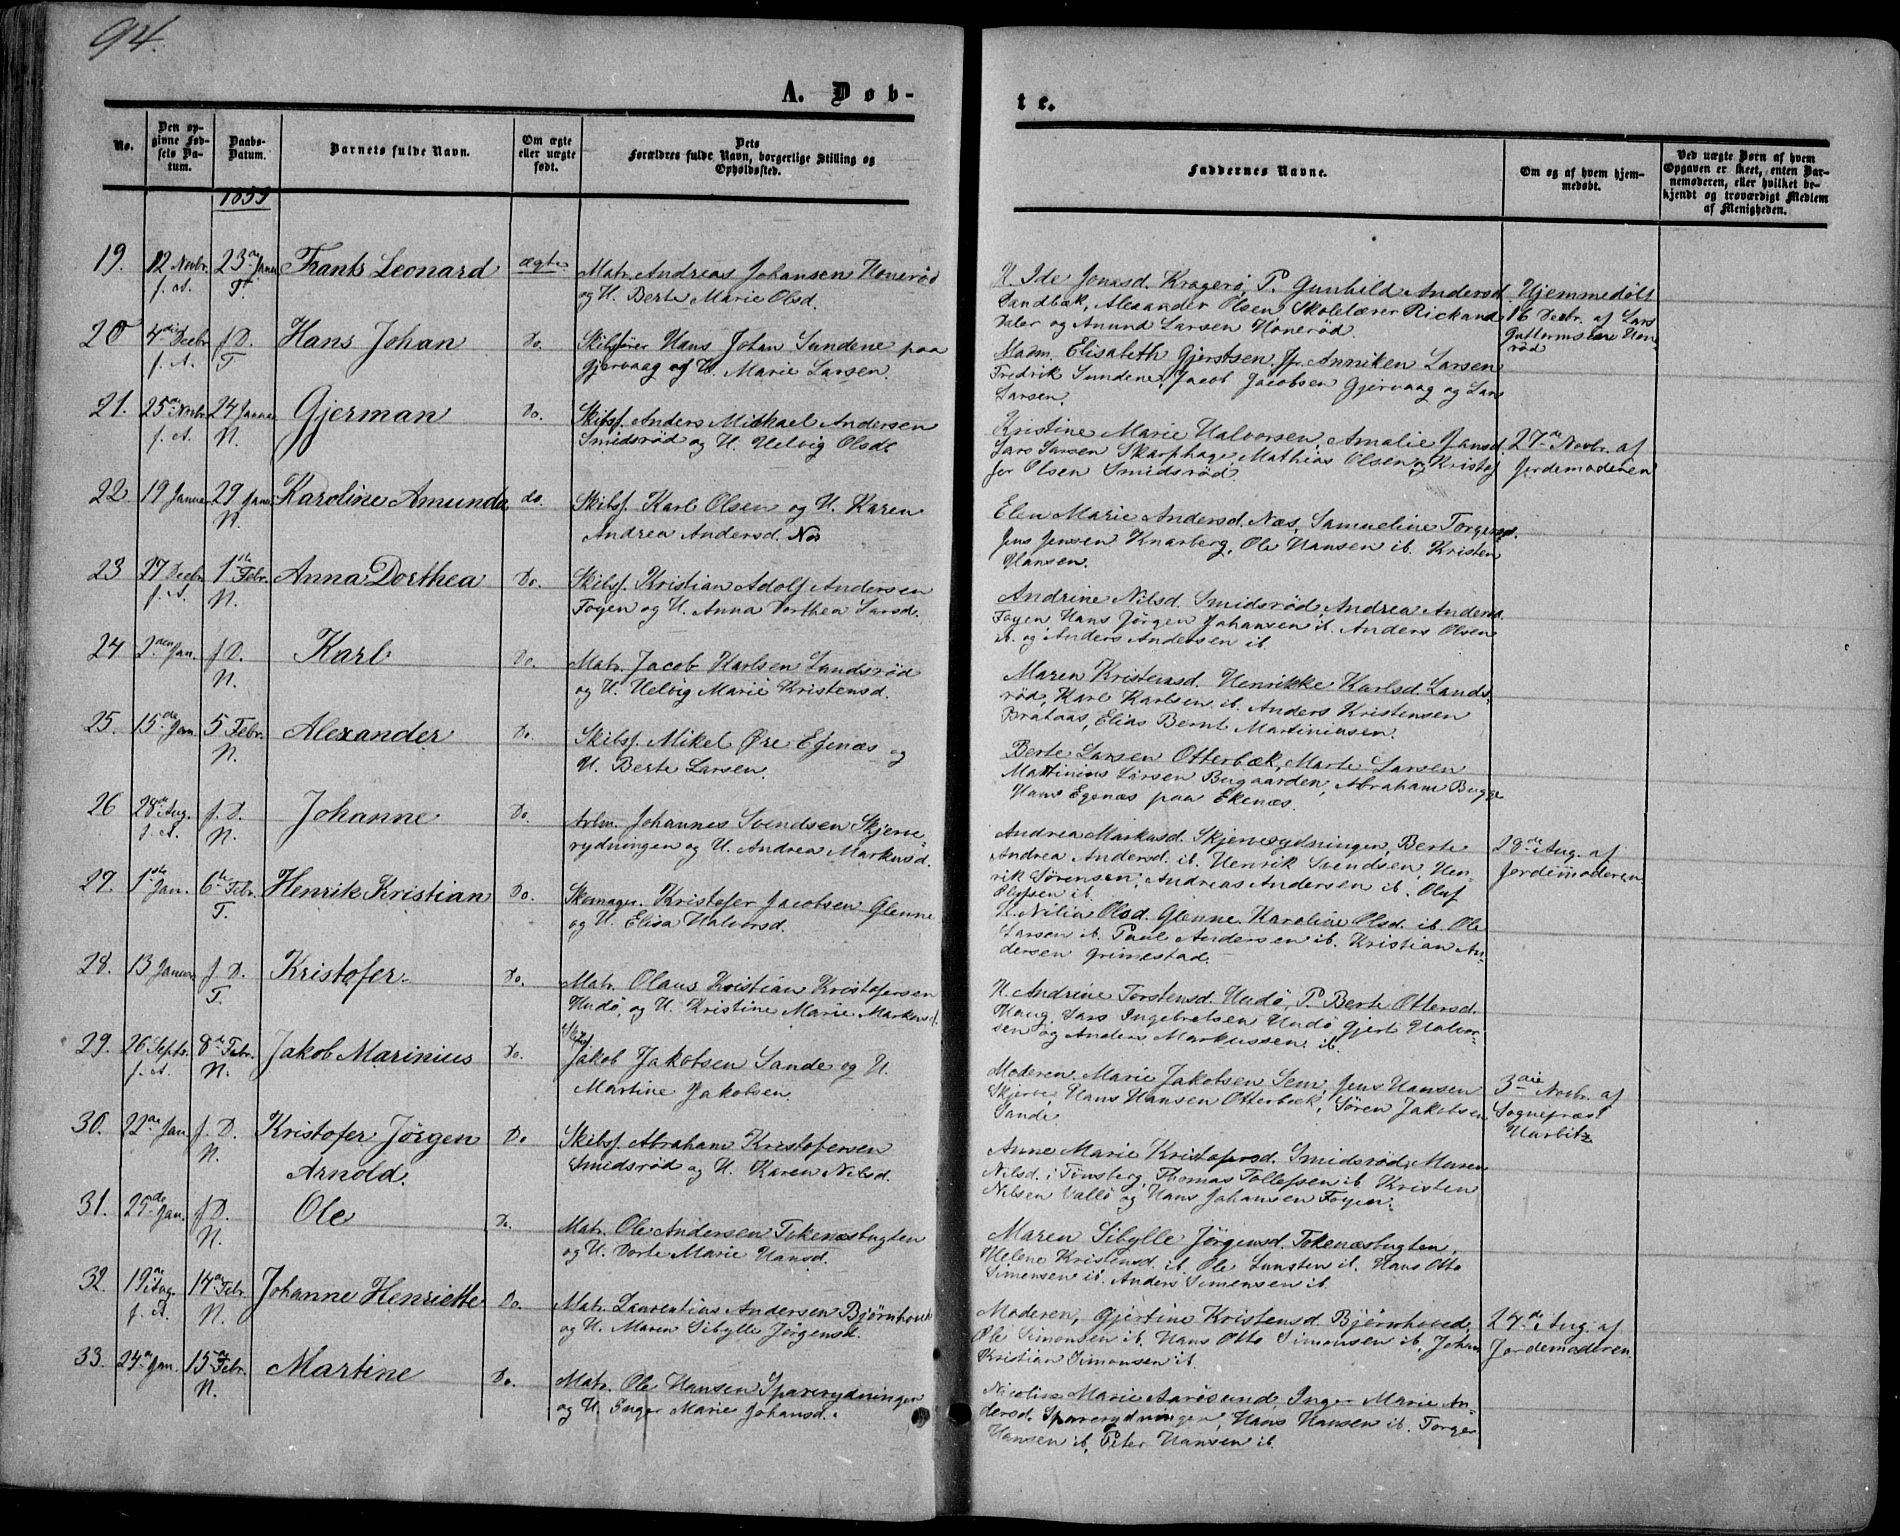 94.
A. Døb-
te.
No.
Den op-
givne Fød-
sels Da-
tum.
Daabs-
Datum.
Barnets fulde Navn.
Om ægte
eller uægte
født.
Dets
Forældres fulde Navn, borgerlige Stilling og
Opholdssted.
Faddernes Navne.
Om og af hvem hjem-
medøbt.
Ved uægte Børn af hvem
Opgaven er skeet, enten Bar-
nemoderen, eller hvilket be-
kjendt og troværdigt Medlem
af Menigheden.
1859
19. 12 Novbr. f. A. 23de Januar T. Frants Leonard ægte
Matr. Andreas Johansen Honerød
og H. Berte Marie Olsd.
H. Ide Jonasd. Kragerø, P. Gunhild Andersd
Sandbæk, Alexander Olsen, Skolelærer Rickard
Daler og Anund Larsen Honerød.
Hjemmedøbt
16 Decbr. af Lars
Guttormsen Hon-
rød
20 4de Decbr. f. A. f. D. T. Hans Johan Do.
Skibsfører Hans Johan Sundene paa
Gjervaag og H. Marie Larsen.
Madm. Elisabeth Gjertsen, Jfr. Anniken Larsen
Fredrik Sundene, Jacob Jacobsen Gjervaag og Lars
Larsen.
21. 25de Novbr. f. A. 24 Januar N. Gjerman Do.
Skibsf. Anders Michael Andersen
Smidsrød og H. Helvig Olsdt.
Kristine Marie Halvorsen, Amalie Jansd.
Lars Larsen Skarphage Mathias Olsen og Kristof
fer Olsen Smidsrød.
27de Novbr. af
Jordemoderen
22. 19 Januar 29 Januar N. Karoline Amunda do.
Skibsf. Karl Olsen og H. Karen
Andrea Andersd. Næs
Elen Marie Andersd. Næs, Samueline Torgersd.
Jens Jensen Knarberg, Ole Hansen ib. Kristen
Hansen.
23 27 Decbr. f. A. 1ste Febr. N. Anna Dorthea Do.
Skibsf. Kristian Adolf Andersen
Foyen og H. Anna Dorthea Larsd.
Andrine Nilsd. Smidsrød, Andrea Andersd.
Foyen, Hans Jørgen Johansen ib. Anders Olsen
ib. og Anders Andersen ib.
24 2den Jan. f. D. N. Karl Do.
Matr. Jacob Karlsen Landsrød
og H. Helvig Marie Kristensd.
Maren Kristensd. Henrikke Karlsd. Lands-
rød, Karl Karlsen ib. Anders Kristensen
Brataas, Elias Bernt Martiniusen.
25. 15de Jan. 5 Febr. N. Alexander Do.
Skibsf. Mikel Øre Egenæs og
H. Berte Larsen.
Berte Larsen Otterbæk, Marte Larsen
Martinius Larsen Bugaarden, Abraham Bugge
Hans Egenæs paa Ekenæs.
26 28de Aug. f. A. f. D. N. Johanne Do.
Arbm. Johannes Svendsen Skjerve
rydningen og H. Andrea Markusd.
Andrea Markusd. Skjerverydningen, Berte
Andrea Andersd. ib. Henrik Svendsen, Hen-
rik Sørensen, Andreas Andersen ib. Oluf
Olufsen ib.
29de Aug. af
Jordemoderen
27. 1ste Jan. 6te Febr. T. Henrik Kristian Do.
Skomager. Kristofer Jacobsen Glenne
og H. Elisa Halvorsd.
H. Nilia Olsd. Glenne, Karoline Olsd. ib. Ole
Larsen ib. Paul Andersen ib. Kristian An-
dersen Grimestad.
28. 13 Januar f. D. T. Kristofer Do.
Matr. Olaus Kristian Kristofersen
Hudø, og H. Kristine Marie Markusd.
H. Andrine Torstensd. Hudø, P. Berte Ottersd.
Haug, Lars Ingebretsen Hudø, Gjert Halvor-
sen og Anders Markussen ib.
29. 26 Septr. f. A. 8de Febr. N. Jakob Marinius Do.
Skibsf.
Jakob Jakobsen Sande og H.
Martine Jakobsen.
Moderen, Marie Jakobsen Sem, Jens Hansen
Skjerve, Hans Hansen Otterbæk, Søren Jakobsen
Sande
3die Novbr. af
Sognepræst
Harbitz
30. 22de Jan f. D. N. Kristofer Jørgen
Arnold. Do
Skibsf. Abraham Kristofersen
Smidsrød og H. Karen Nilsd.
Anne Marie Kristofersd. Smidsrød, Maren
Nilsd. i Tønsberg, Thomas Tollefsen ib. Kristen
Nilsen Vallø og Hans Johansen Foyen.
31. 29de Jan. f. D. N. Ole Do.
Matr. Ole Andersen Tokenæsbugten
og H. Dorte Marie Hansd.
Maren Sibylle Jørgensd. Tokenæsbugten,
Helene Kristensd. ib. Ole Lunsten ib. Hans Otto
Simensen ib. Anders Simensen ib.
32. 19de Aug. f. A. 14de Febr. N. Johanne Henriette Do.
Matr. Laurentius Andersen Bjørnhoved
og H. Maren Sibylle Jørgensd.
Moderen, Gjertine Kristensd Bjørnhoved,
Ole Simonsen ib. Hans Otto Simonsen ib. Johan
Kristian Simonsen ib.
24de Aug. af
Jordemoderen.
33. 24de Jan. 15de Febr. N. Martine Do.
Matr. Ole Hansen Sparerydningen
og H. Inger Marie Johansd.
Nicoline Marie Aarøsund, Inger Marie An-
dersd. Sparerydningen, Hans Hansen ib. Torger
Hansen ib. Peter Hansen ib.